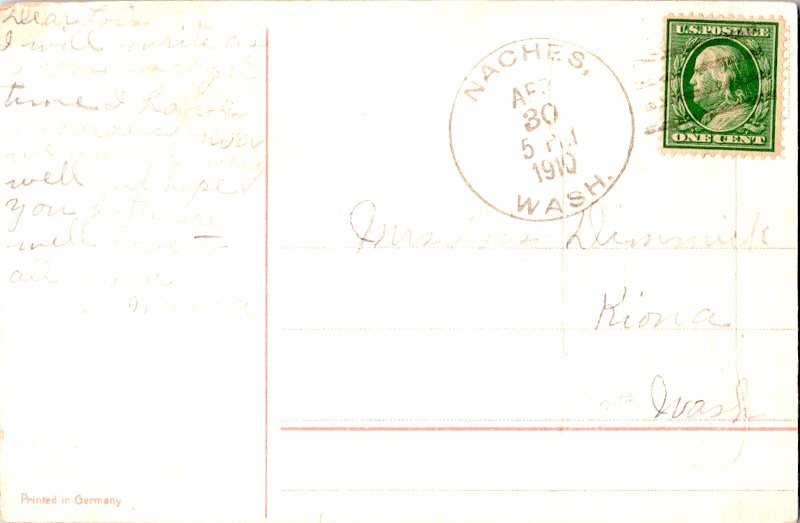 Dear Lois
I will write as
soon as I get
time I have
now
we are all very
well and hope
you both are
well love to
all your
mama
NACHES,
APR
30
5 PM
1910
WASH.
U.S. POSTAGE
ONE CENT
Mrs Lois Dimmick
Kiona
Wash
Printed in Germany